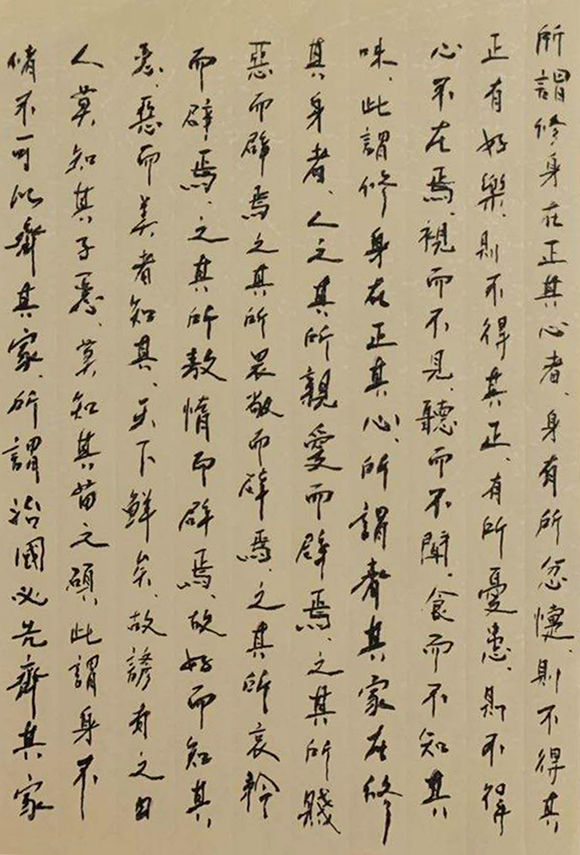 所謂修身在正其心者、身有所忿懥、則不得其
正有好樂、則不得其正、有所憂患、則不得
心不在焉、視而不見、聽而不聞、食而不知其
味、此謂修身在正其心、所謂齊其家在修
其身者、人之其所親愛而辟焉、之其所賤
惡而辟焉之其所畏敬而辟焉、之其所哀矜
而辟焉、之其所敖惰而辟焉、故好而知其
惡、惡而美者知其、天下鮮矣、故諺有之曰
人莫知其子惡、莫知其苗之碩、此謂身不
脩不可以齊其家、所謂治國必先齊其家